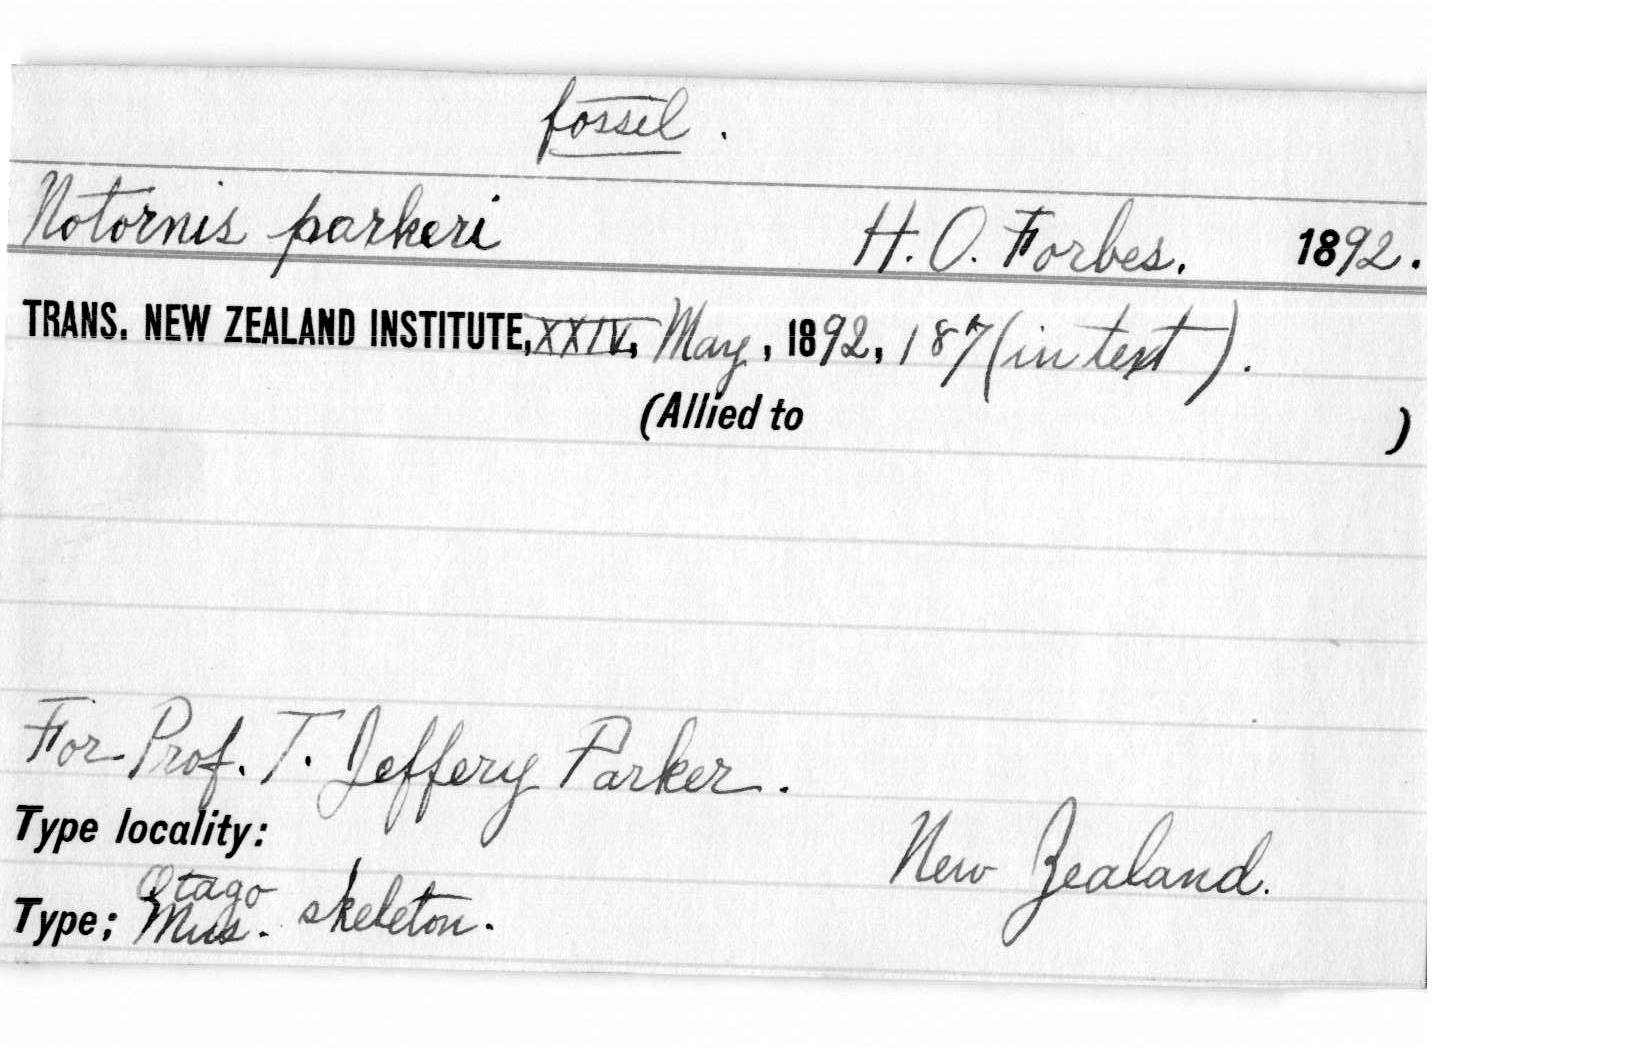 fossel.
Notornis parkeri H. O. Forbes. 1892.
TRANS. NEW ZEALAND INSTITUTE, XXIV, May, 1892, 187 (in text).
(Allied to )
For Prof. T. Jeffery Parker.
Type locality: New Zealand.
Otago
Type; Mus. skeleton.